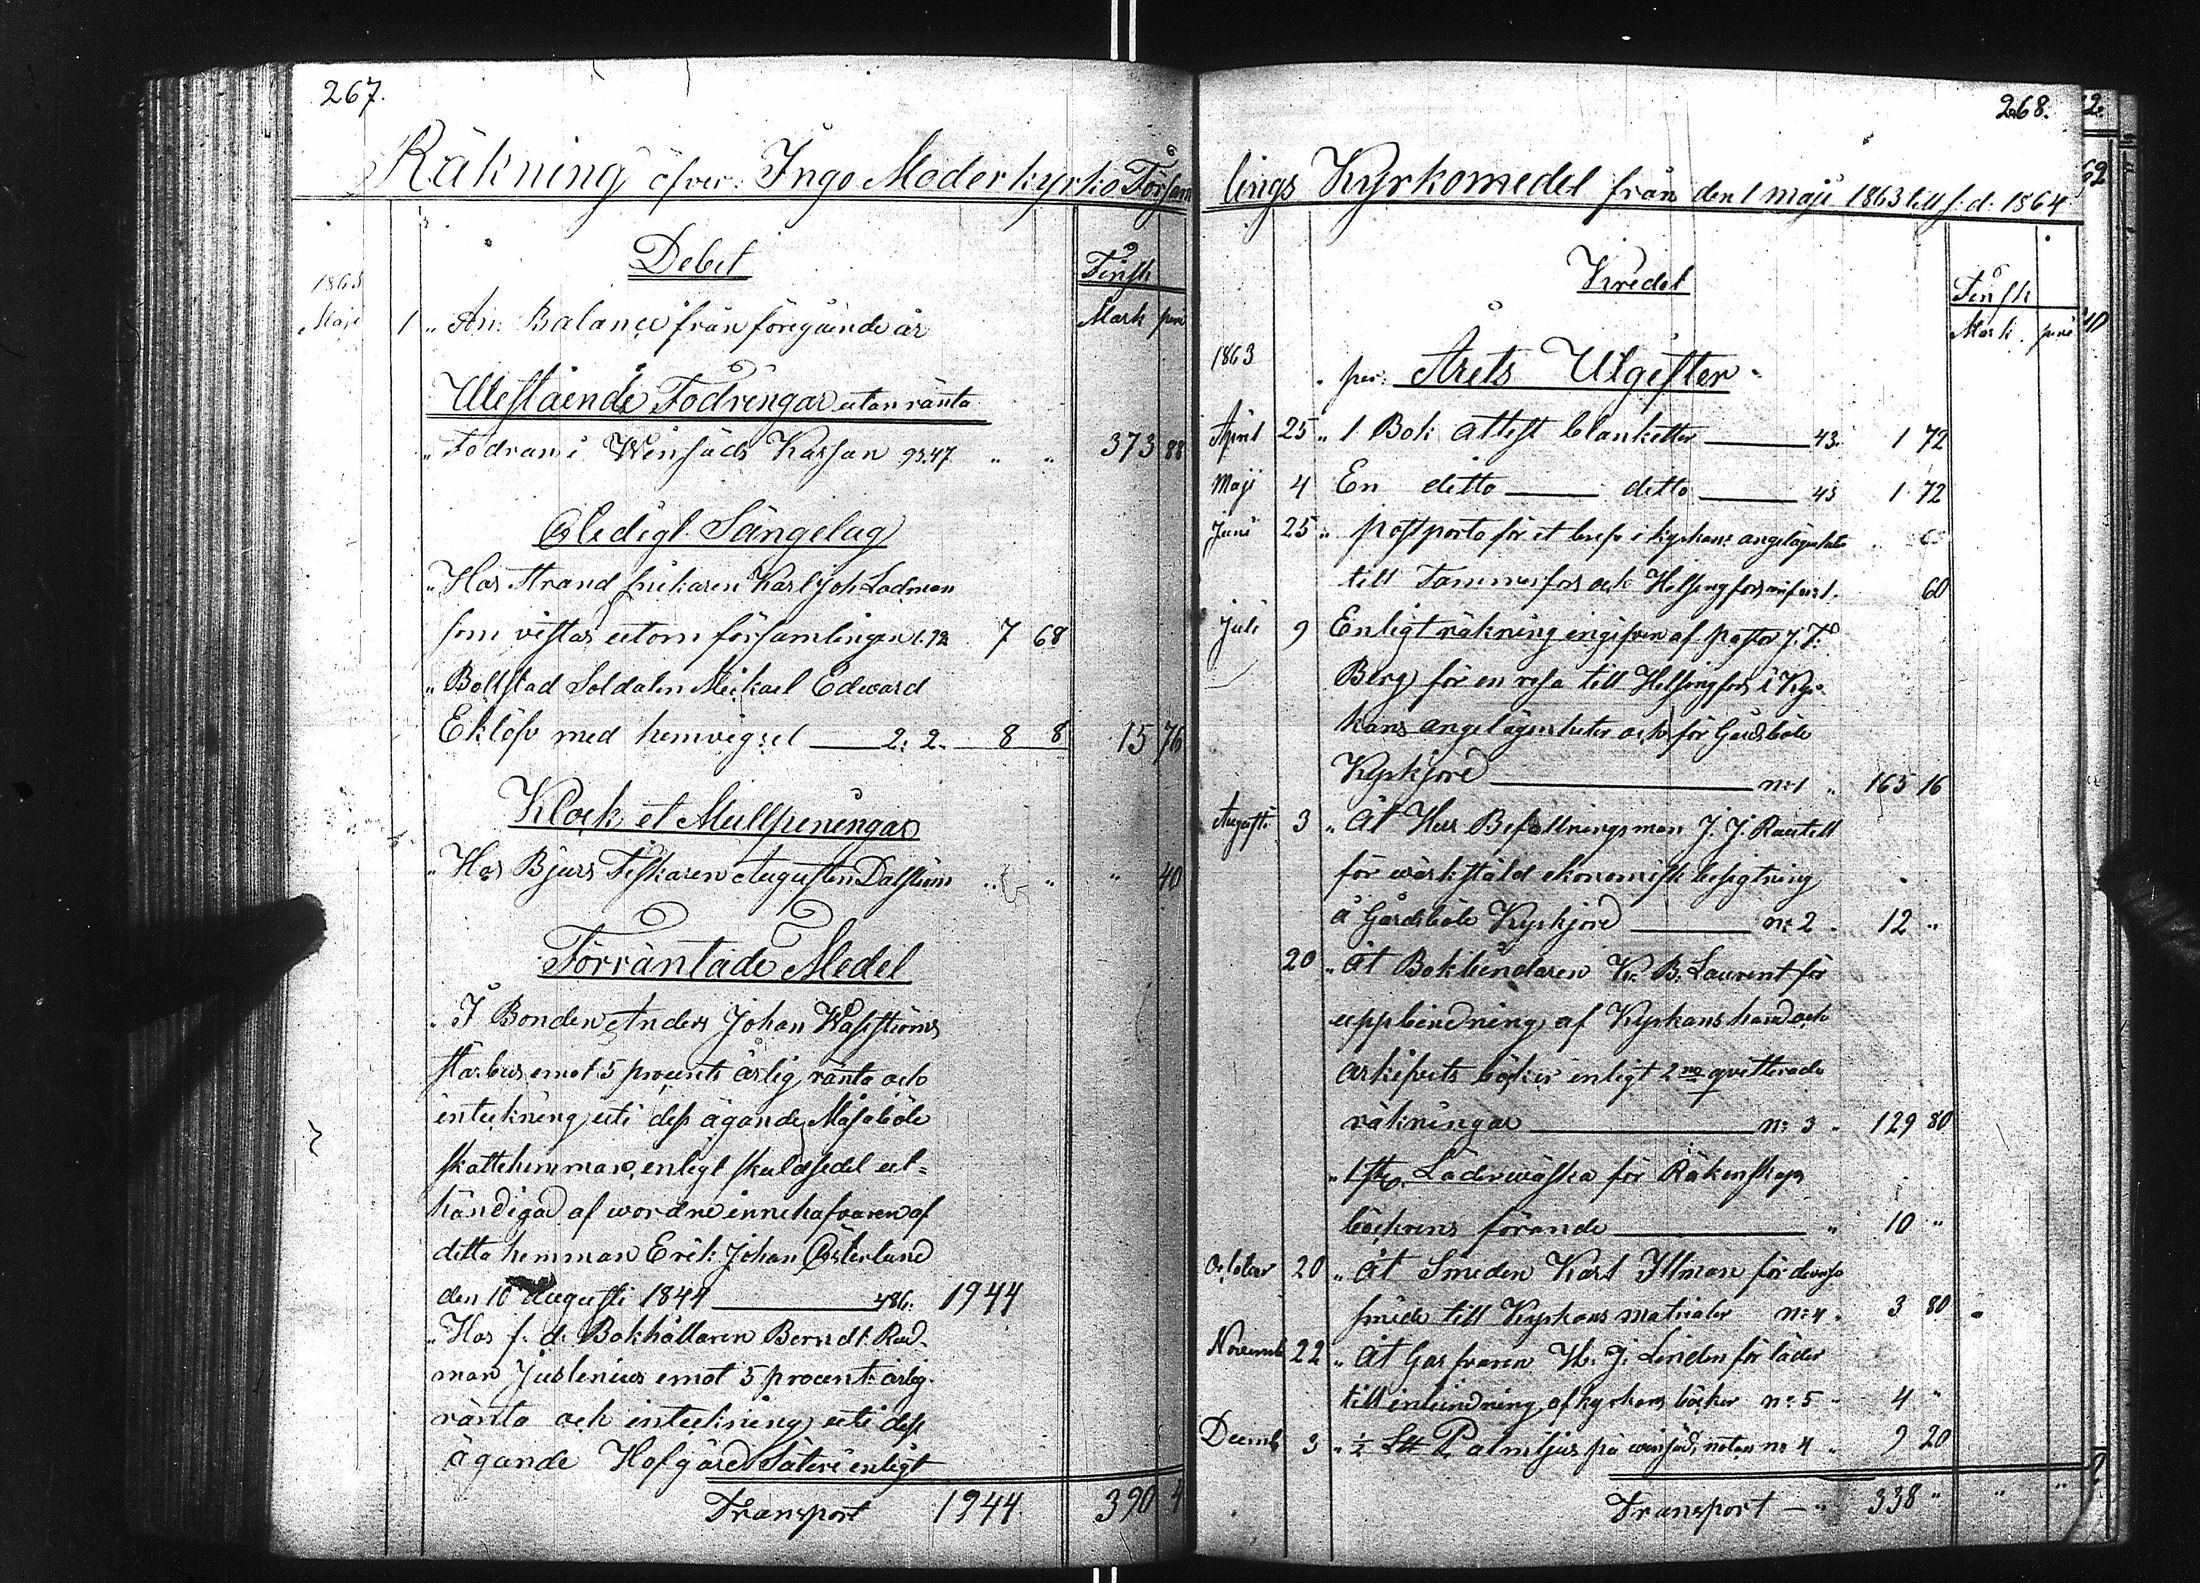 267.
Räkning öfver Ingo Moderkyrko Försam
Debet
Finsk
1863
Mark pen
Maji 1 " An: Balance från föregående år
Utestående Fodringar utan ränta
" Fodran i Winsäds Kassan 93.47 " " 373 88
Oledigt Sängelag
" Hos Strand fiskaren Karl Joh. Lodman
som vistas utom församlingen 1.92 7 68
" Bollstad Soldaten Mickael Edward
Eklöf med hemvigsel 2: 2. 8 8 15 76
Klock et Mullpeningar
" Hos Bjurs Fiskaren Augusten Dalström " " " 40
Förräntade Medel
" I Bonden Anders Johan Wasströms
Sterbus emot 5 procents årlig ränta och
inteckning uti dess ägande Masaböle
skattehemman, enligt skuldsedel ut-
händigad af wordne innehafvaren af
detta hemman Erik Johan Österlund
den 10 Augusti 1844 486. 1944
" Hos f. d. Bokhållaren Berndt Rud-
man Juslenius emot 5 procents årlig
ränta och inteckning uti dess
ägande Hofgård Säteri enligt
Transport 1944. 390 4
268.
lings Kyrkomedel från den 1 maji 1863 till s. d. 1864
Kredit
Finsk
Mark. peni
1863
" per. Årets Utgifter
April 25 " 1 Bok attest blanketter 43. 1 72
Maji 4 En ditto ditto 43 1 72
Juni 25 " postporto för et bref i kyrkans angelägenheter
till Tammerfors och Helsingfors 60
Juli 9 Enligt räkning ingifven af pastor J. F.
Berg för en resa till Helsingfors i Kyr-
kans angelägenheter och för Gårdsböle
Kyrkjord n:1 " 165 16
Augusti 3 " Åt Herr Befallningsman J. J. Rautell
för wärkstäld ekonomisk besigtning
å Gårdsböle Kyrkjord n: 2 " 12 "
20 " Åt Bokbindaren K. B. Laurent för
uppbindning af Kyrkans hand och
arkifvets böcker enligt 2ne qvitterade
räkningar n: 3 " 129 80
" 1 st. Läderwäska för Räkenskaps
böckrens förande " 10 "
October 20 " Åt Smeden Karl Illman för diverse
smide till Kyrkans matrialer n: 4 " 3 80
Novemb 22 " Åt Garfvaren K. J. Linden för läder
till inbindning af kyrkans böcker n: 5 " 4 "
Decemb 3 " ½ L℔ Palmljus på winsäds notan n: 4 " 9 20
Transport — " 338 " " "